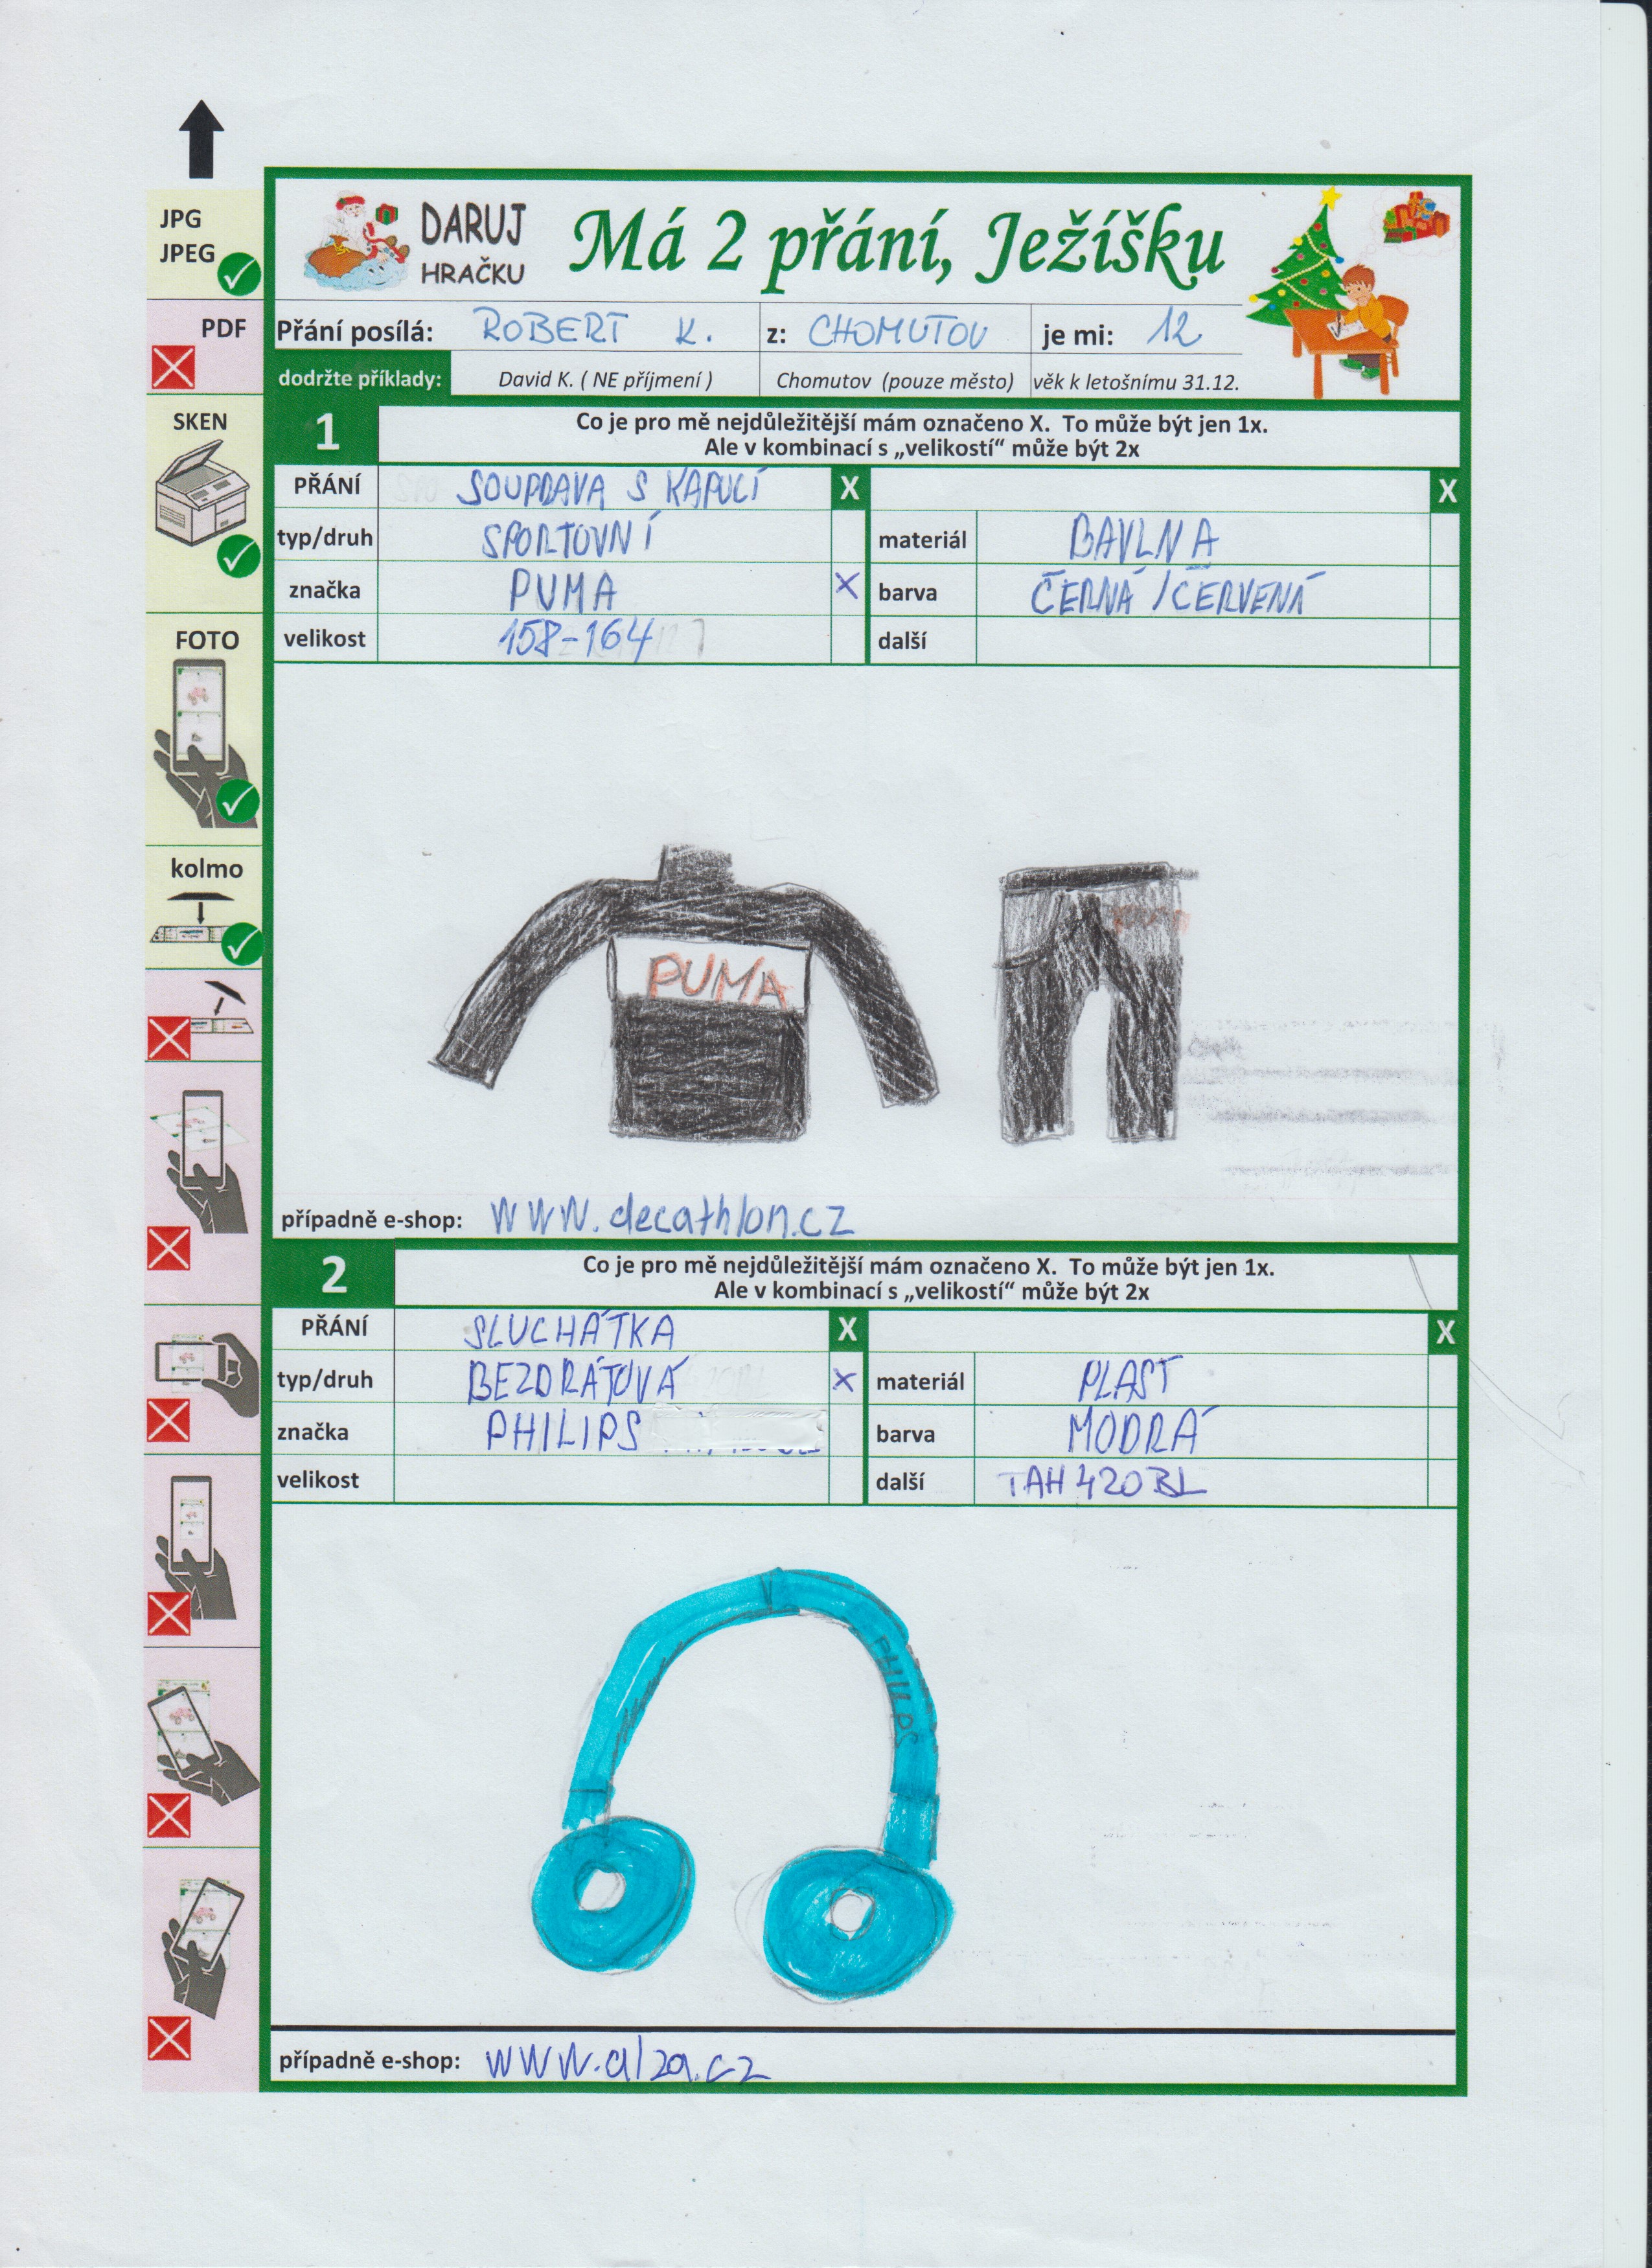 JPG
JPEG
PDF
SKEN
FOTO
kolmo
DARUJ
HRAČKU
Má 2 přání, Ježíšku
Přání posílá: ROBERT K. z: CHOMUTOV je mi: 12
dodržte příklady: David K. ( NE příjmení ) Chomutov (pouze město) věk k letošnímu 31.12.
1 Co je pro mě nejdůležitější mám označeno X. To může být jen 1x.
Ale v kombinací s „velikostí“ může být 2x
PŘÁNÍ SOUPRAVA S KAPUCÍ X X
typ/druh SPORTOVNÍ materiál BAVLNA
značka PUMA X barva ČERNÁ / ČERVENÁ
velikost 158-164 další
PUMA
puma
případně e-shop: WWW.decathlon.cz
2 Co je pro mě nejdůležitější mám označeno X. To může být jen 1x.
Ale v kombinací s „velikostí“ může být 2x
PŘÁNÍ SLUCHÁTKA X X
typ/druh BEZDRÁTOVÁ X materiál PLAST
značka PHILIPS barva MODRÁ
velikost další TAH420BL
PHILIPS
případně e-shop: WWW.alza.cz